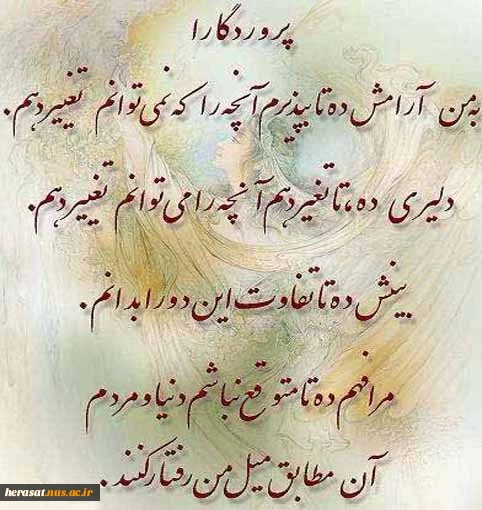 پروردگارا
به من آرامش ده تا بپذیرم آنچه را که نمی توانم تغییر دهم.
دلیری ده، تا تغییر دهم آنچه را می توانم تغییر دهم.
بینش ده تا تفاوت این دو را بدانم.
مرا فهم ده تا متوقع نباشم دنیا و مردم
آن مطابق میل من رفتار کنند.
herasat.nus.ac.ir